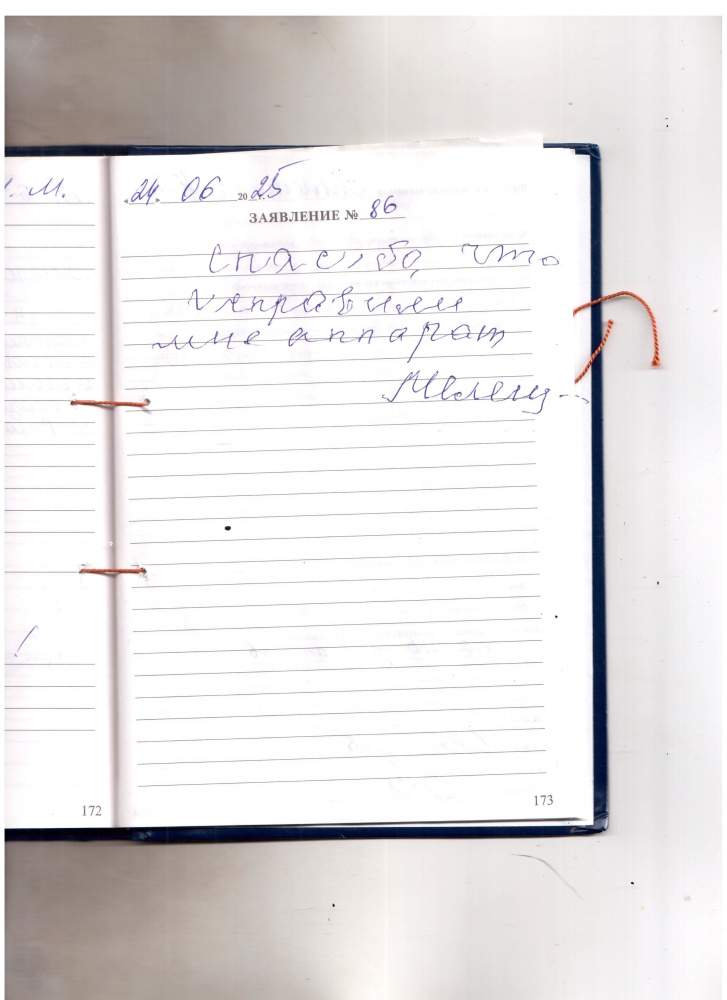 . М.
„24" 06 2025 г.
ЗАЯВЛЕНИЕ № 86
Спасибо, что
исправили
мне аппарат
!
172
173